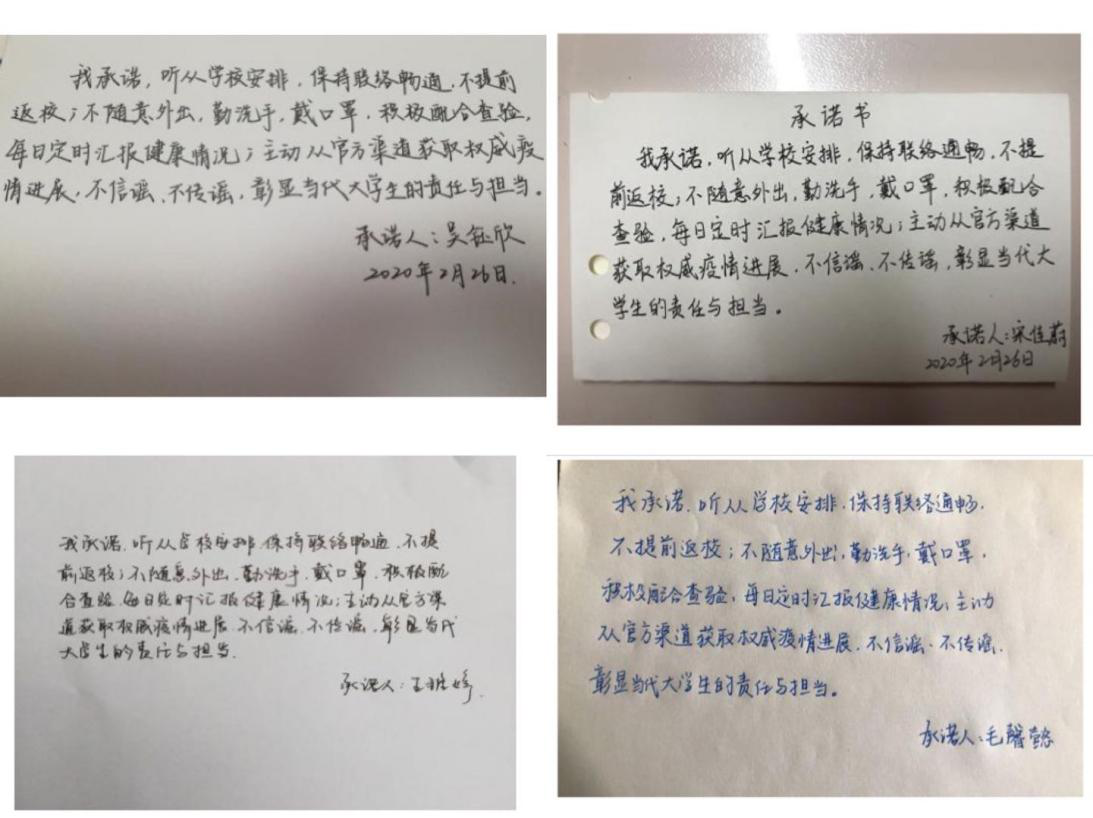 我承诺，听从学校安排，保持联络畅通，不提前
返校；不随意外出，勤洗手，戴口罩，积极配合查验，
每日定时汇报健康情况；主动从官方渠道获取权威疫
情进展，不信谣、不传谣，彰显当代大学生的责任与担当。
承诺人：吴钰欣
2020年2月26日.
承诺书
我承诺，听从学校安排，保持联络通畅，不提
前返校；不随意外出，勤洗手，戴口罩，积极配合
查验，每日定时汇报健康情况；主动从官方渠道
获取权威疫情进展，不信谣、不传谣，彰显当代大
学生的责任与担当。
承诺人：宋佳蔚
2020年2月26日
我承诺，听从学校安排，保持联络畅通，不提
前返校；不随意外出，勤洗手，戴口罩，积极配
合查验，每日定时汇报健康情况；主动从官方渠
道获取权威疫情进展，不信谣、不传谣，彰显当代
大学生的责任与担当.
承诺人：王
我承诺，听从学校安排，保持联络通畅，
不提前返校；不随意外出，勤洗手，戴口罩，
积极配合查验，每日定时汇报健康情况；主动
从官方渠道获取权威疫情进展，不信谣、不传谣，
彰显当代大学生的责任与担当。
承诺人：毛馨